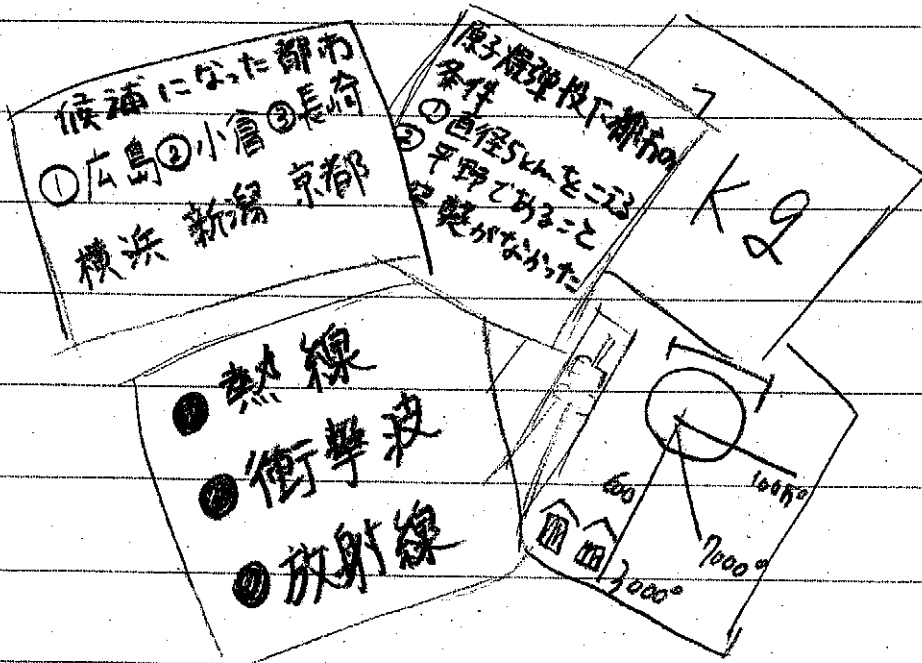 候補になった都市
①広島②小倉③長崎
横浜 新潟 京都
原子爆弾投下都市の
条件
①直径5kmをこえる
②平野であること
空襲がなかった
Kg
熱線
衝撃波
放射線
600
100万°
7000°
3,000°